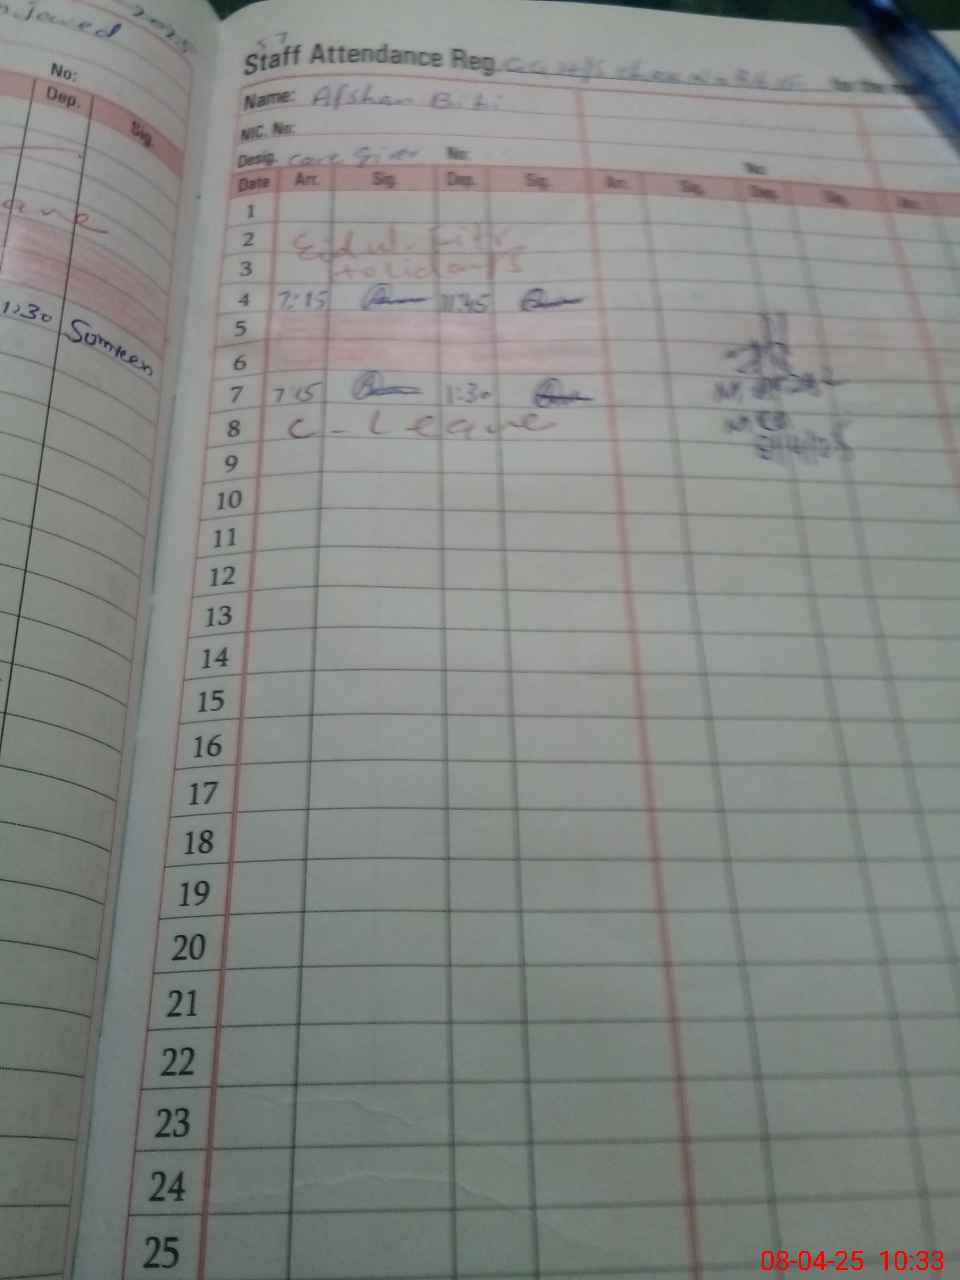 2025
No:
Dep.
Sig.
1:30 Sumreen
Staff Attendance Reg.
Name: Afshan Bibi
NIC. No:
Desig. Care Giver No:
No:
Date Arr. Sig. Dep. Sig. Arr. Sig. Dep. Sig. Arr.
1
2 Eid ul. Fitr
3 Holidays
4 7:15 11:45
5
6
7 7:15 1:30
8 C - Leave
9
10
11
12
13
14
15
16
17
18
19
20
21
22
23
24
25
08-04-25 10:33